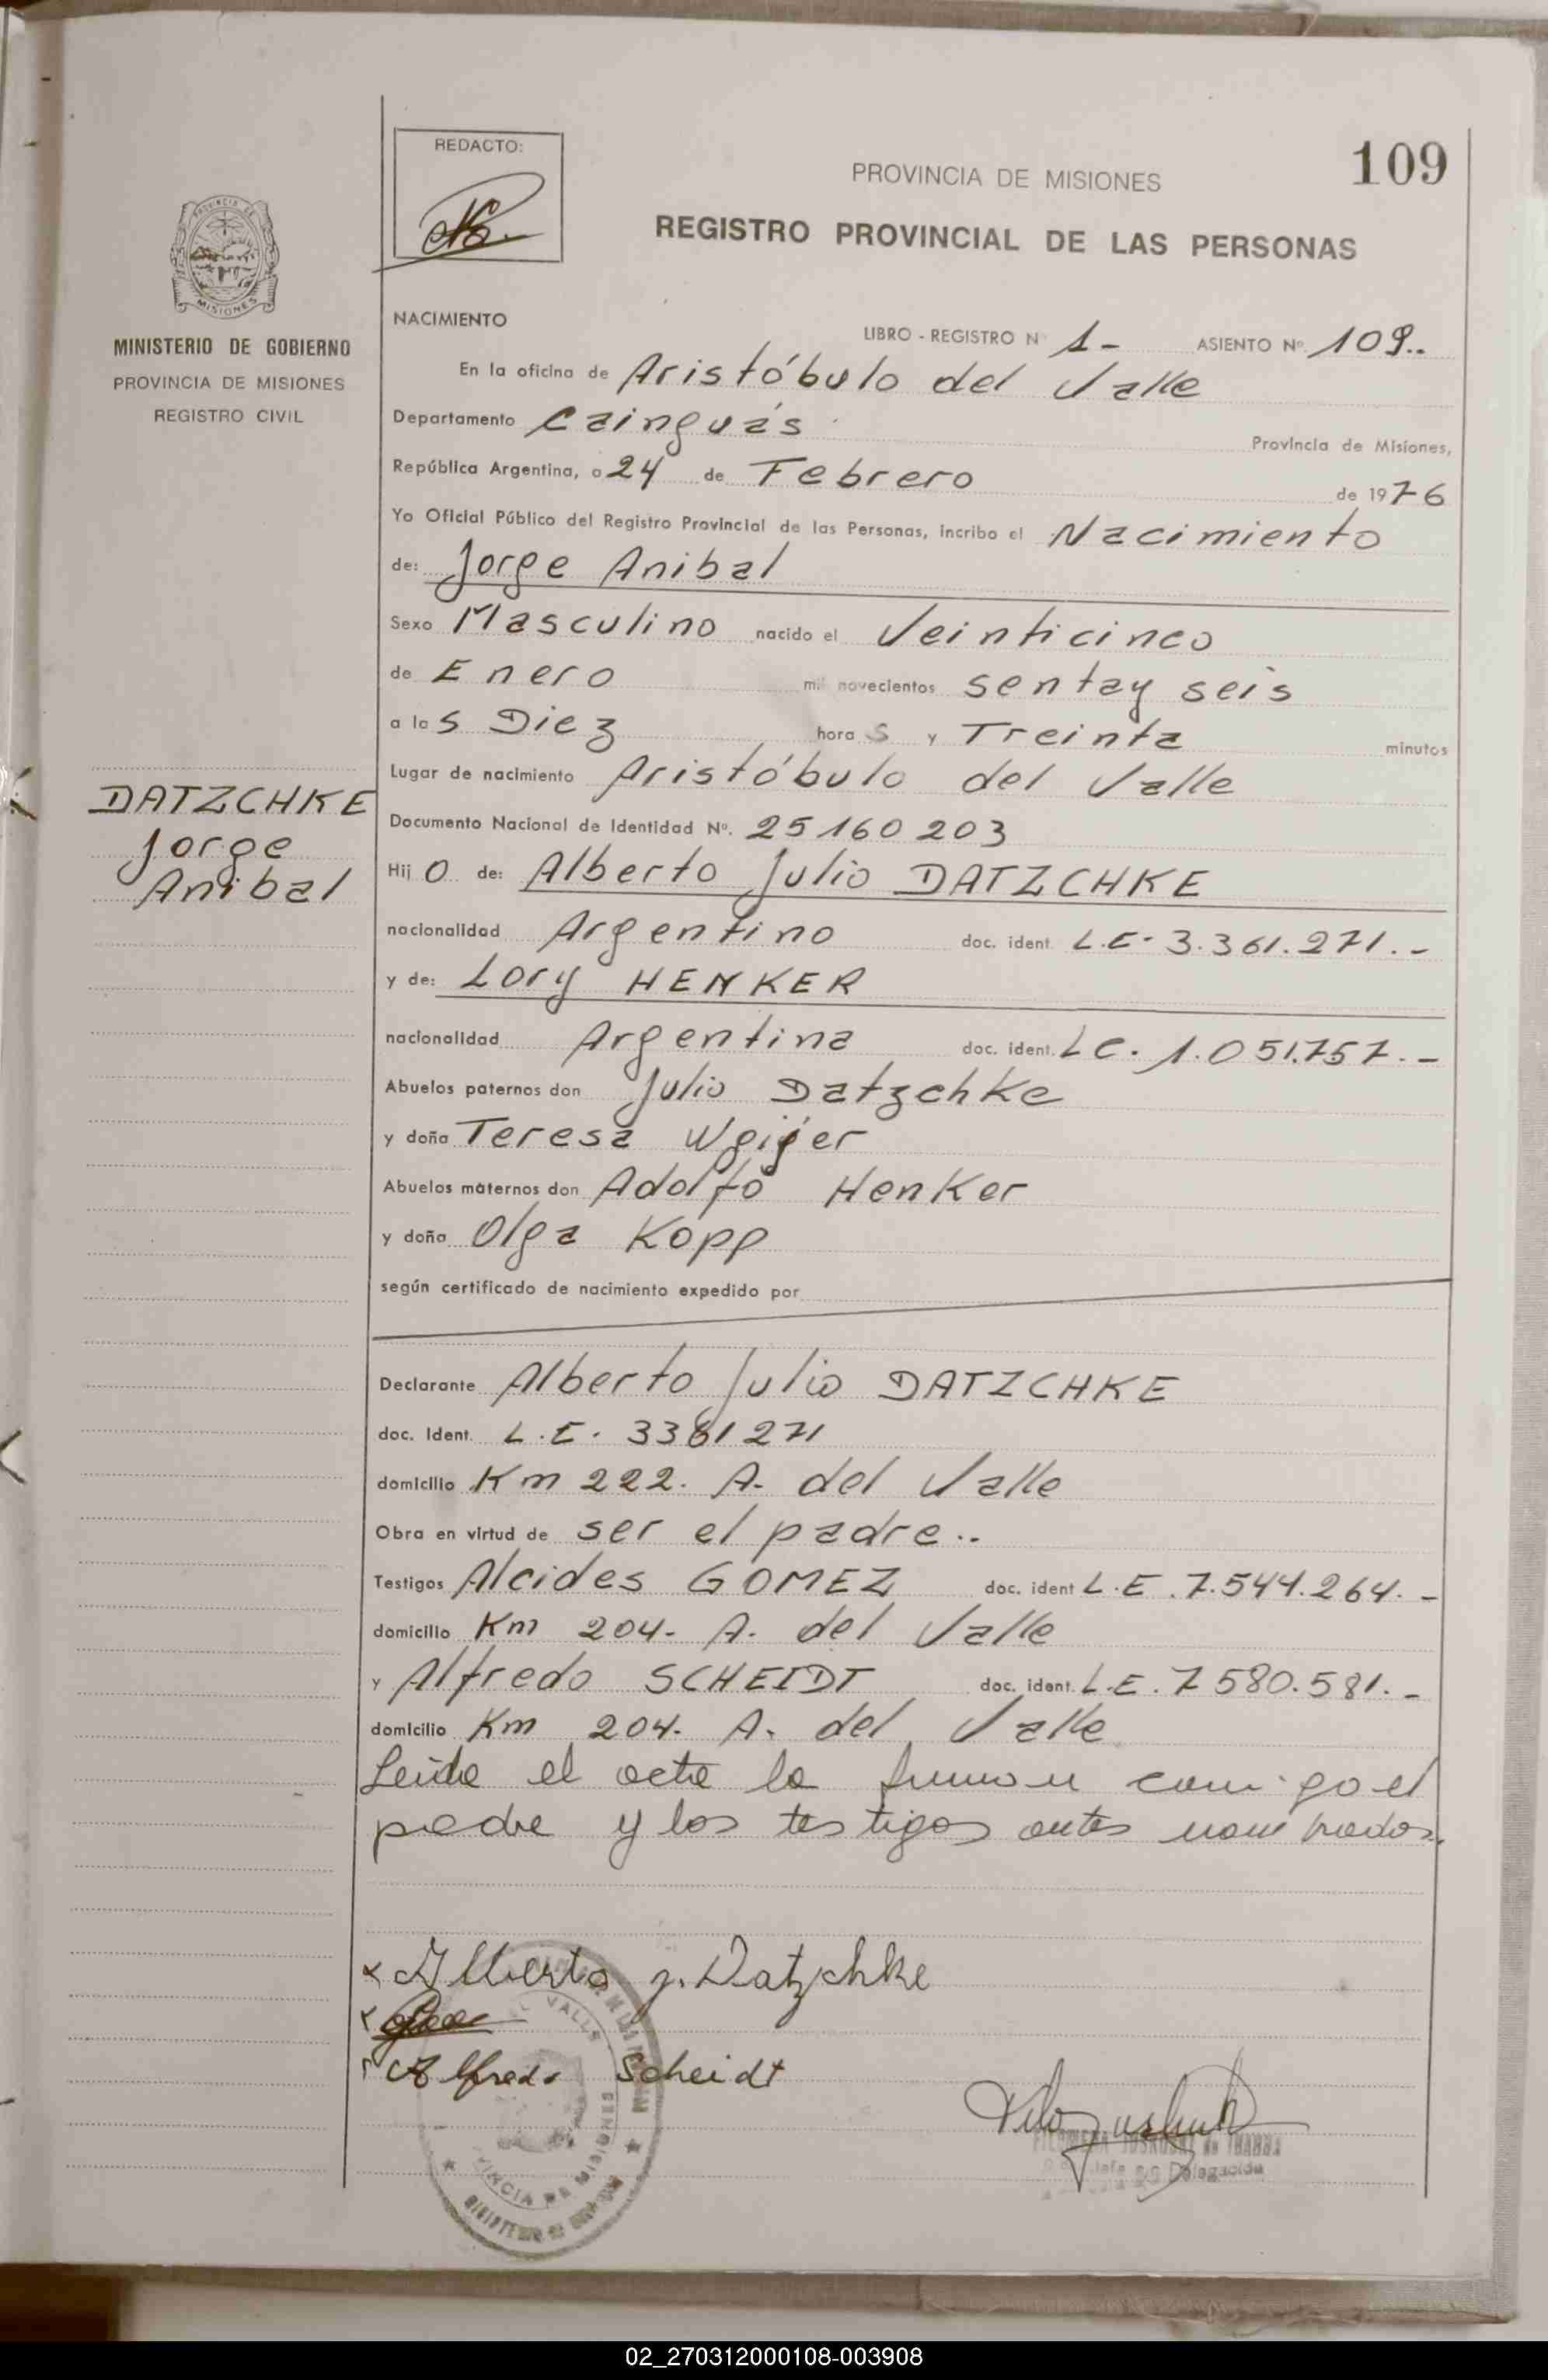 REDACTO:
PROVINCIA DE MISIONES
109
REGISTRO PROVINCIAL DE LAS PERSONAS
PROVINCIA DE
MISIONES
MINISTERIO DE GOBIERNO
PROVINCIA DE MISIONES
REGISTRO CIVIL
NACIMIENTO
LIBRO - REGISTRO Nº 1- ASIENTO Nº. 109..
En la oficina de Aristóbulo del Valle
Departamento Cainguás Provincia de Misiones,
República Argentina, a 24 de Febrero de 1976
Yo Oficial Público del Registro Provincial de las Personas, incribo el Nacimiento
de: Jorge Anibal
Sexo Masculino nacido el Veinticinco
de Enero mil novecientos sentay seis
a las Diez horas y Treinta minutos
Lugar de nacimiento Aristóbulo del Valle
DATZCHKE
Jorge
Anibal
Documento Nacional de Identidad Nº. 25160203
Hijo de: Alberto Julio DATZCHKE
nacionalidad Argentino doc. ident. L.E- 3.361.271.-
y de: Lory HENKER
nacionalidad Argentina doc. ident. LC. 1.051.757.-
Abuelos paternos don Julio Datzchke
y doña Teresa
Abuelos maternos don Adolfo Henker
y doña Olga Kopp
según certificado de nacimiento expedido por
Declarante Alberto Julio DATZCHKE
doc. Ident. L.E. 3361271
domicilio Km 222. A. del Valle
Obra en virtud de ser el padre..
Testigos Alcides GOMEZ doc. ident L.E. 7.544.264.-
domicilio Km 204- A. del Valle
y Alfredo SCHEIDT doc. ident. L.E. 7580.581.-
domicilio Km 204- A. del Valle
Leida el acta la firman conmigo el
padre y los testigos antes nombrados.
Alberto J. Datzchke
Alfredo Scheidt
VALLE
PROVINCIA DE MISIONES
Delegación
02_270312000108-003908